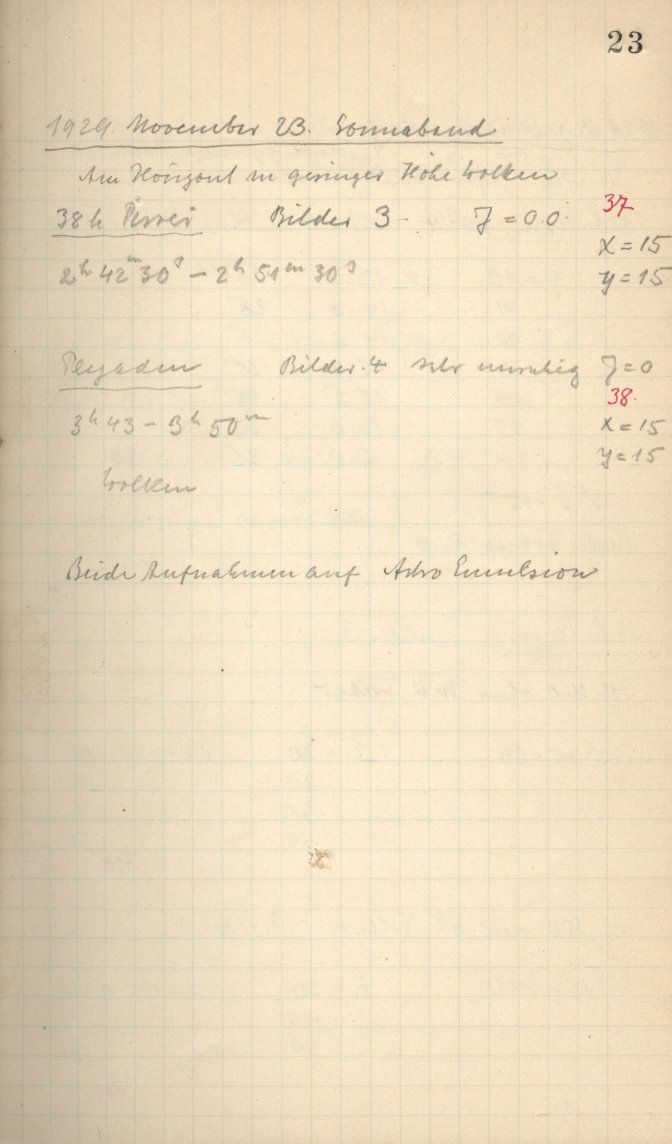 23
1929 November 23. Sonnabend
Am Horizont in geringer Höhe Wolken
38 h Persei Bilder 3 - J = 0.0. 37
x = 15
2h 42m 30s – 2h 51m 30s y = 15
Plejaden Bilder 4 sehr unruhig J = 0
38.
3h 43 – 3h 50m x = 15
y = 15
Wolken
Beide Aufnahmen auf Astro Emulsion